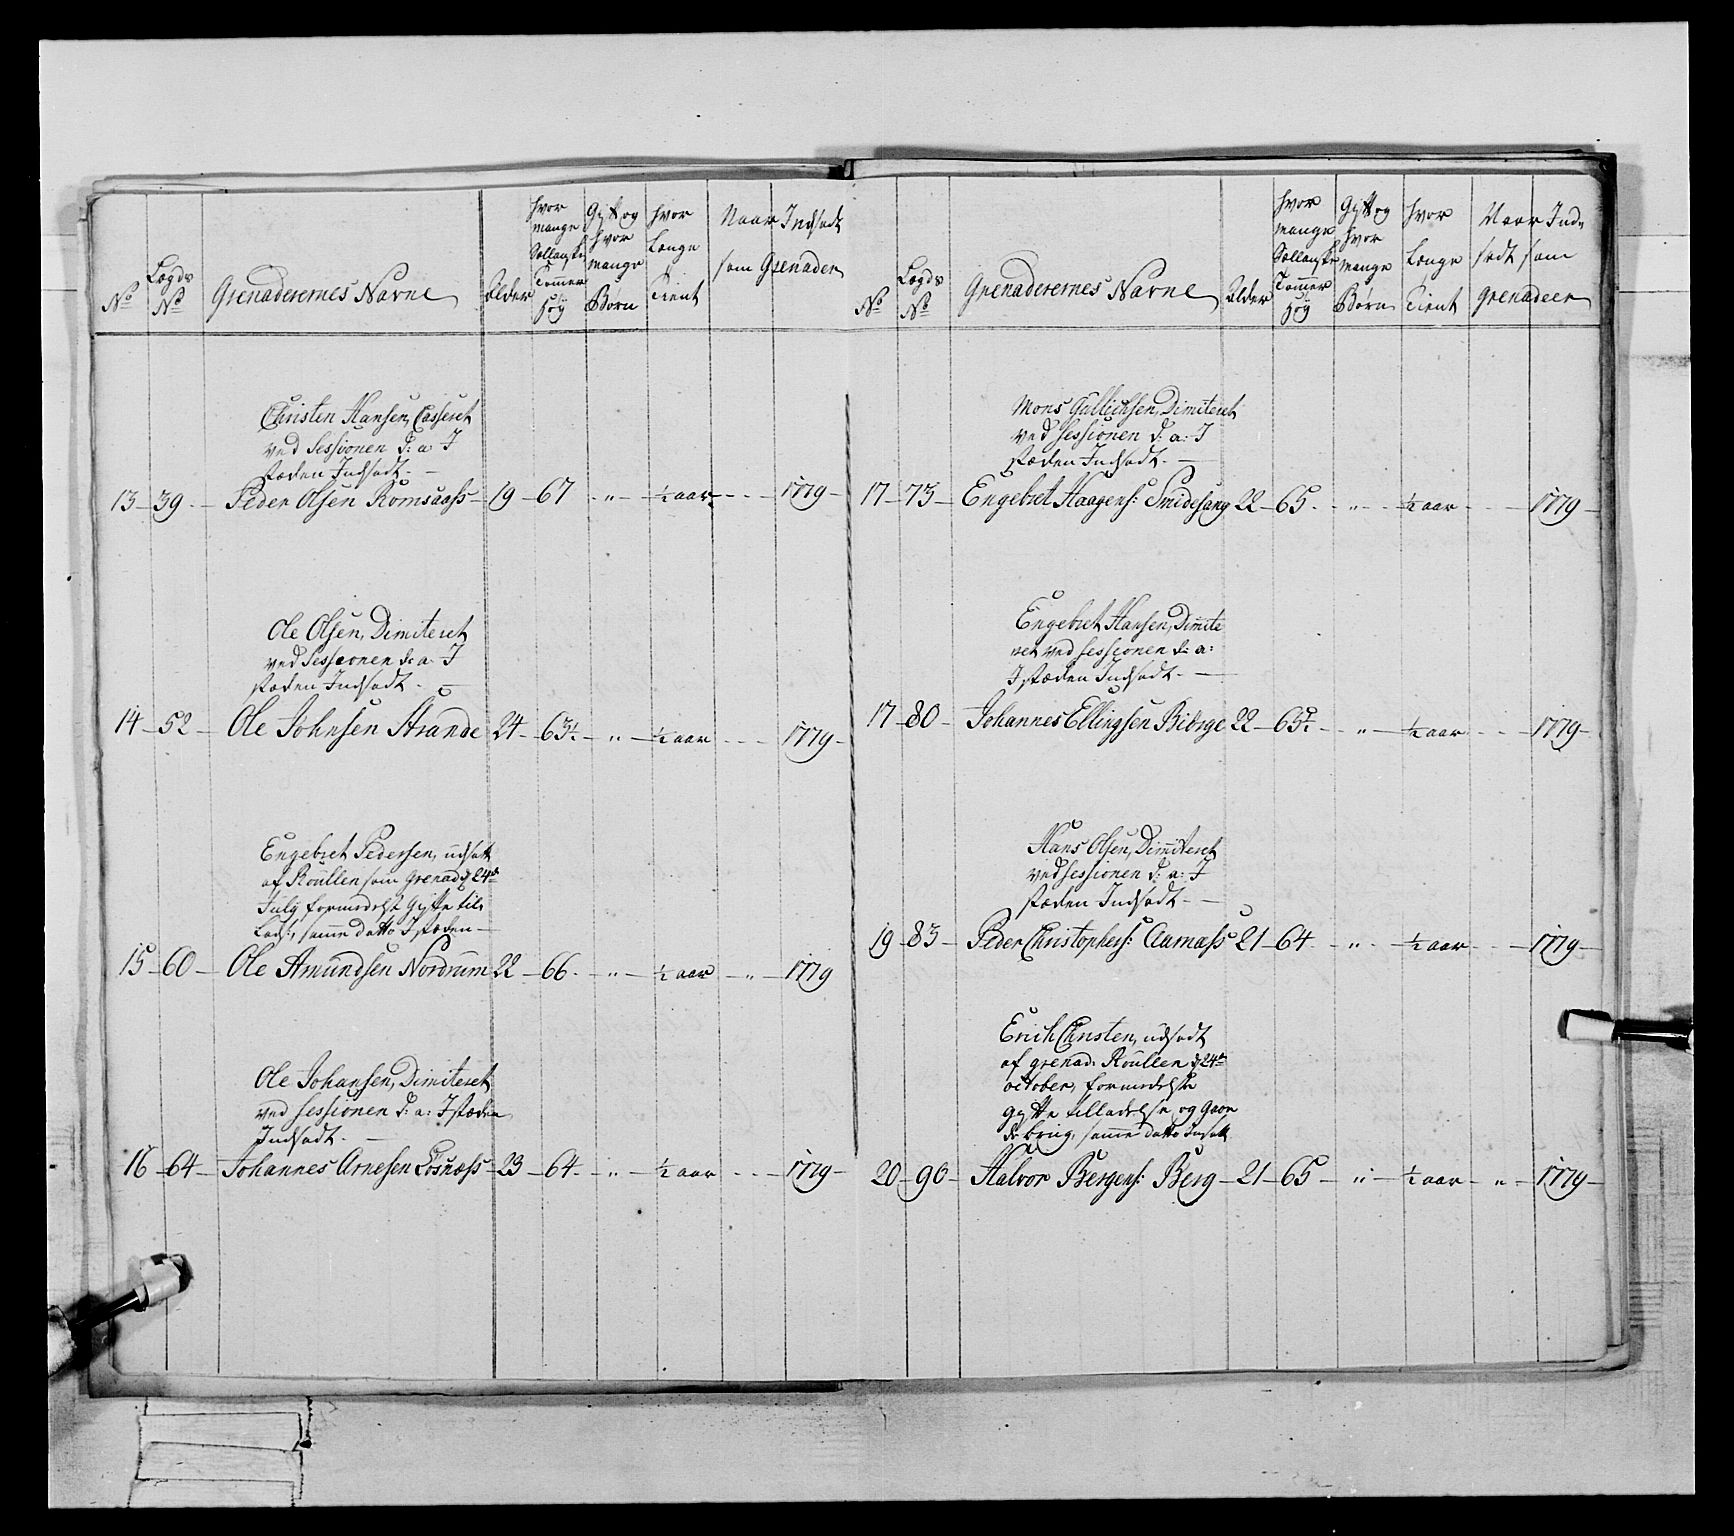 No
Lægds No
Grenaderernes Navne
Alder
hvor mange Sællanske Tommer høy
Gift og hvor mange Børn
hvor Længe Tient
Naar Indsadt som Grenader
Christen Hansen, Casseret
ved Sessionen d: a: I
stæden Indsadt. —
13 — 39. — Peder Olsen Romsaass — 19 — 67 — „ — ½ aar — — 1779 —
Ole Olsen, Dimiteret
ved Sessionen d: a: I
stæden Indsadt. —
14 — 52 — Ole Johnsen Strande 24 — 63½ — „ — ½ aar — — 1779 —
Engebret Pedersen, udsatt
af Roullen som Grenad: d 24de
July formedelst Gifte til
Lads:, samme datto I stæden —
15 — 60 — Ole Amundsen Nordrum 22 — 66. — „ — ½ aar — „ — 1779
Ole Johansen, Dimiteret
ved Sessionen d: a: I stæden
Indsadt. —
16 — 64 — Johannes Arnesen Losnæss — 23 — 64. — „ — ½ aar — — 1779 —
No
Lægds No
Grenaderernes Navne
Alder
hvor mange Sællanske Tommer høy
Gift og hvor mange Børn
hvor Længe Tient
Naar Ind-
sadt som
Grenadeer
Mons Gullichsen, Dimiteret
ved Sessionen d: a: I
stæden Indsadt. —
17 — 73 — Engebret Haagens: Smidesang 22 — 65. — „ — ½ aar — — 1779 —
Engebret Hansen, Dimite
ret ved Sessionen d: a:
I stæden Indsadt. —
17 — 80 — Johannes Ellingsen Biørge 22 — 65½ — „ — ½ aar — — 1779 —
Hans Olsen, Dimiteret
ved Sessionen d: a: I
stæden Indsadt. —
19 — 83 — Peder Christophers: Aamass 21 — 64 — „ — ½ aar — — 1779 —
Erich Christen, udsadt
af grenad: Roullen d 24de
october, formedelste
gifte tilladelse, og Gaar
ds brug, samme datto Insatt
20 — 90 — Halvor Bergens: Berg — 21 — 65 — „ — ½ aar — „ — 1779 —